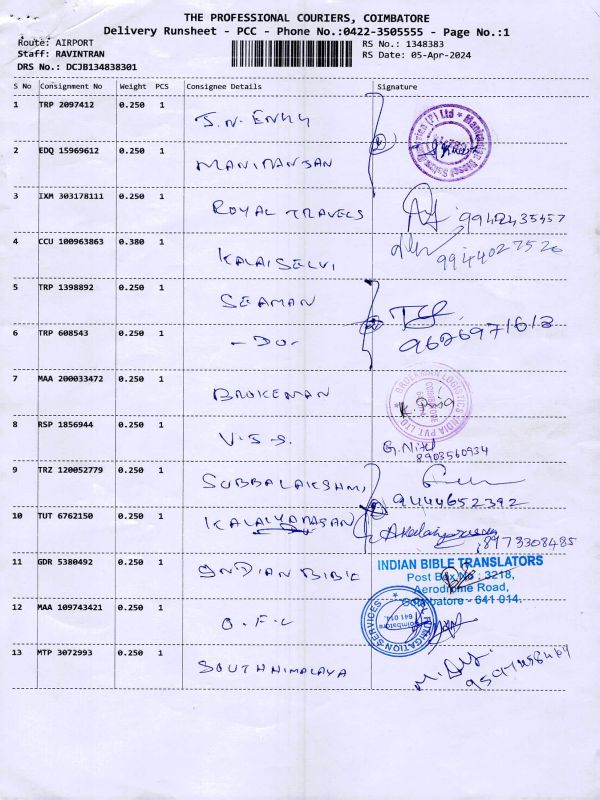 THE PROFESSIONAL COURIERS, COIMBATORE
Delivery Runsheet - PCC - Phone No.:0422-3505555 - Page No.:1
Route: AIRPORT RS No.: 1348383
Staff: RAVINTRAN RS Date: 05-Apr-2024
DRS No.: DCJB134838301
S No Consignment No Weight PCS Consignee Details Signature
1 TRP 2097412 0.250 1 J.N. ENKY
2 EDQ 15969612 0.250 1 MANIMANSAN
3 IXM 303178111 0.250 1 ROYAL TRAVELS 9942435457
4 CCU 100963863 0.380 1 KALAISELVI 9944027526
5 TRP 1398892 0.250 1 SEAMAN
6 TRP 608543 0.250 1 - DO - 9626971613
7 MAA 200033472 0.250 1 BROKEMAN
BROCKMAN LOGISTICS INDIA PVT. LTD. COIMBATORE
8 RSP 1856944 0.250 1 V.S.S. G. Nitel 8903560934
9 TRZ 120052779 0.250 1 SUBBALAKSHMI 9444652392
10 TUT 6762150 0.250 1 8973308485
11 GDR 5380492 0.250 1 INDIAN BIBLE
INDIAN BIBLE TRANSLATORS
Post Box No : 3218,
Aerodrome Road,
Coimbatore - 641 014.
12 MAA 109743421 0.250 1 O.F.C
Coimbatore 641 014.
13 MTP 3072993 0.250 1 SOUTH HIMALAYA